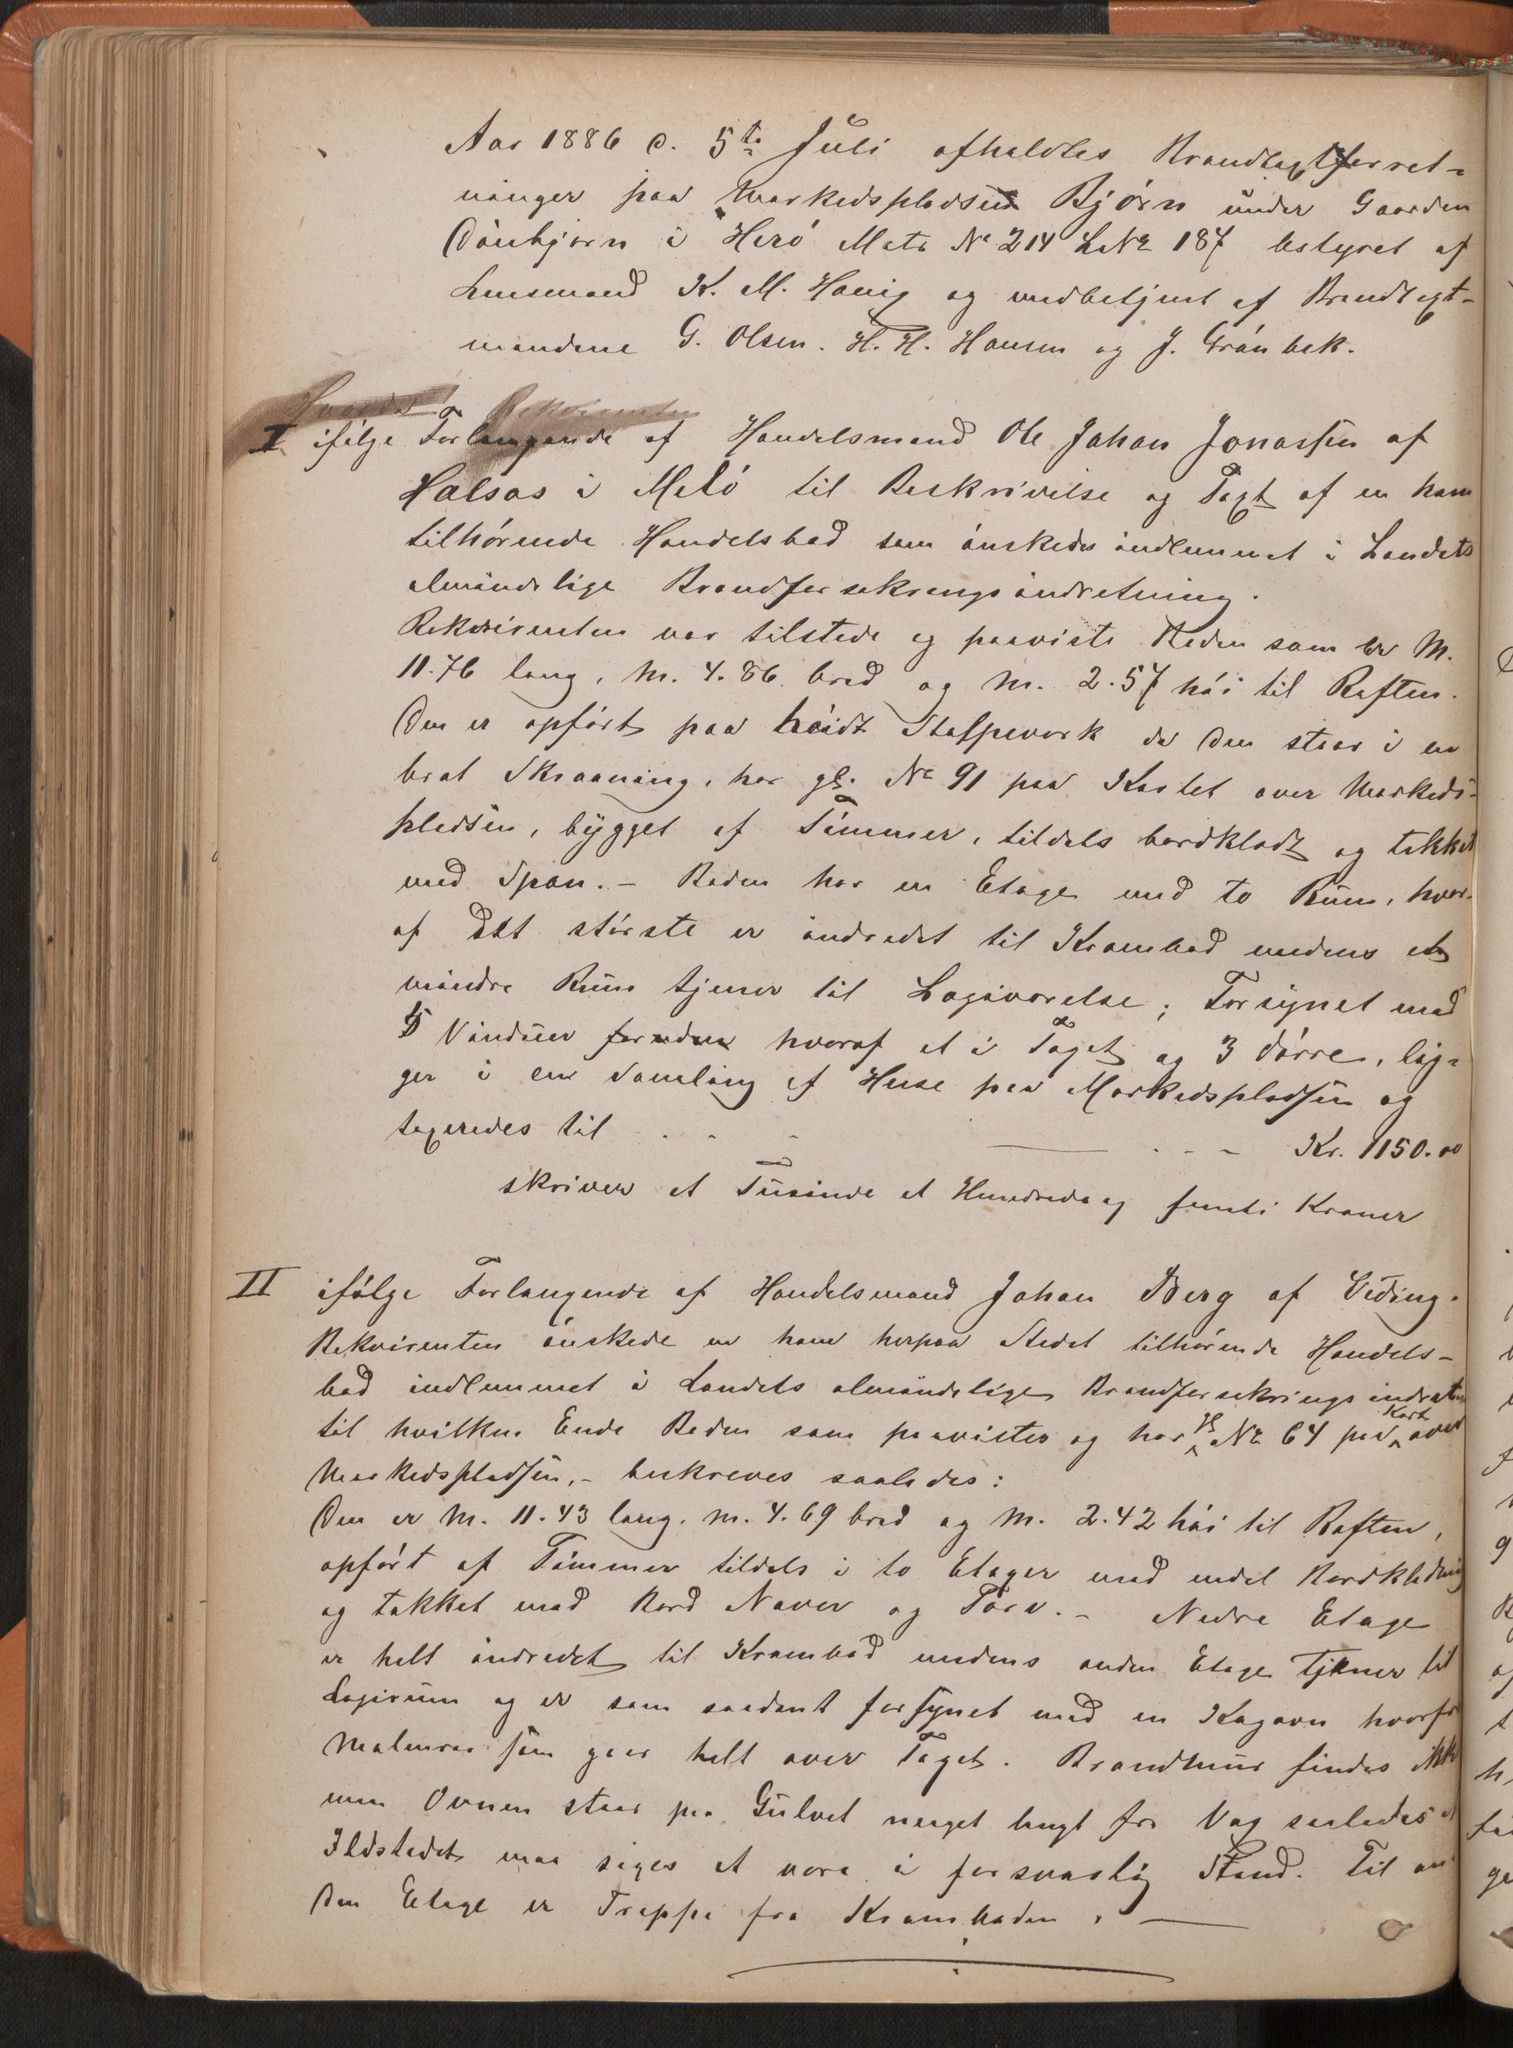 Aar 1886 d. 5te Juli afholdtes Brandtaxtforret-
ninger paa Markedspladsen Bjørn under Gaarden
Dønbjørn i Herø Matr No 214 LNo 187 bestyret af
Lensmand K. M. Havig og medbetjent af Brandtaxt-
mændene G. Olsen. H. H. Hansen og J. Grønbek.
I ifølge Forlangende af Handelsmand Ole Johan Jonassen af
Halsos i Melø til Beskrivelse og Taxt af en ham
tilhørende Handelsbod som ønskedes indlemmet i Landets
almindelige Brandforsekrings indretning.
Rekvirenten var tilstede og paaviste Boden som er M.
11.76 lang, M. 4.86 bred og M. 2.57 høi til Raften.
Den er opført paa høidt Stolpeverk da den staar i en
brat Skraaning, har gl. No 91 paa Kartet over Markeds-
pladsen, bygget af Tømmer, tildels bordklædt og tekket
med Spon. - Boden har en Etage med to Rum, hvor-
af det største er indredet til Krambod medens et
mindre Rum tjener til Logiværelse; Forsynet med
5 Vinduer foruden hvoraf et i Taget og 3 Dørre, lig-
ger i en Samling af Huse paa Markedspladsen og
taxeredes til . . - - . . - Kr. 1150.00
skriver et Tusinde et Hundrede og femti Kroner
II ifølge Forlangende af Handelsmand Johan Berg af Viding.
Rekvirenten ønskede en ham herpaa Stedet tilhørende Handels-
bod indlemmet i Landets almindelige Brandforsekrings indretn
til hvilken Ende Boden som paavistes og har gl No 64 paa Kart over
Markedspladsen, - beskreves saaledes:
Den er M. 11.43 lang, m. 4.69 bred og M. 2.42 høi til Raften,
opført af Tømmer tildels i to Etager med endel Bordklædning
og tækket med Bord Never og Torv. - Nedre Etage
er helt indredet til Krambod medens anden Etage tjener til
Logirum og er som saadant forsynet med en Kagovn hvorfr
Malmrør som gaar helt over Taget. Brandmur findes ikke
men Ovnen staar paa Gulvet meget langt fra Væg saaledes at
Ildstedet maa siges at være i forsvarlig Stand. Til an-
den Etage er Trappe fra Kramboden. -